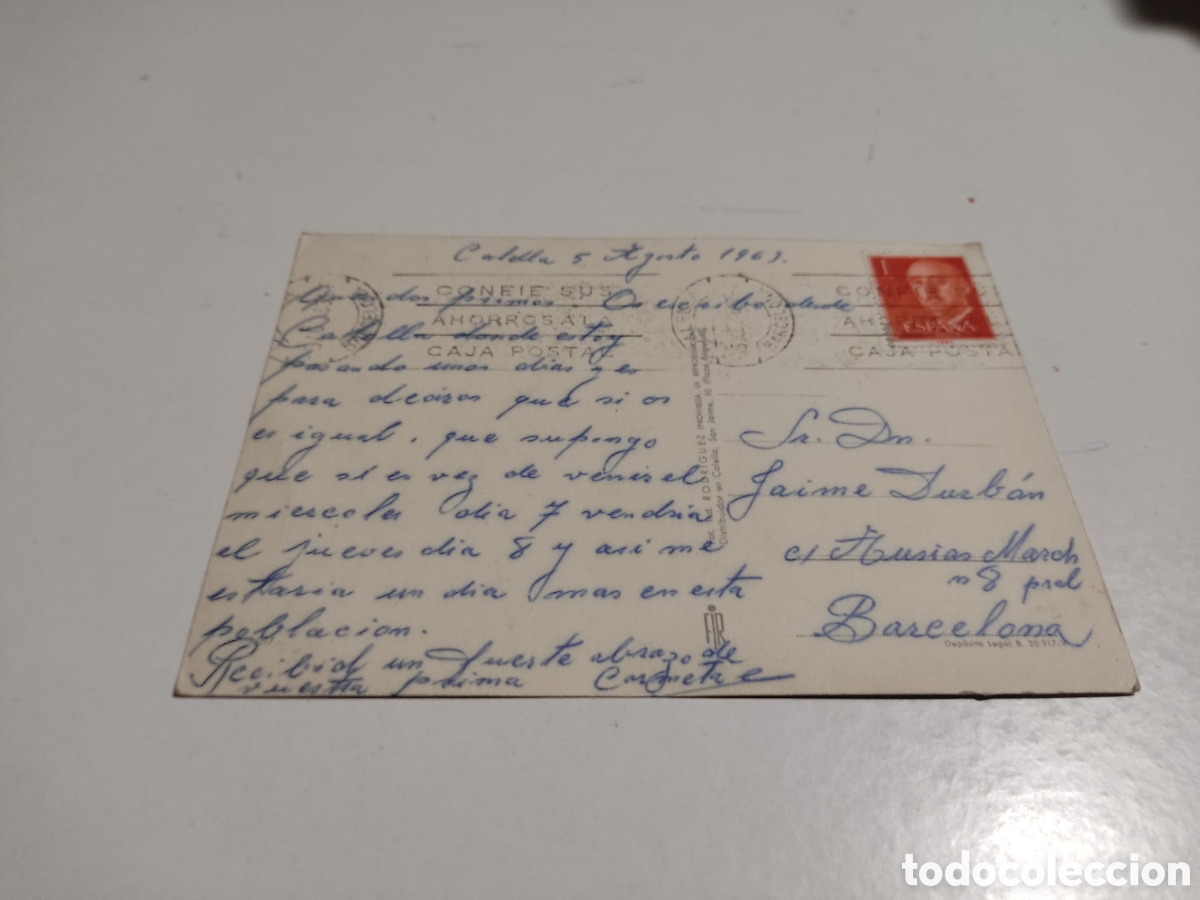 Calella 5 Agosto 1963.
Queridos primos Os escribo desde
Calella donde estoy
pasando unos dias y es
para deciros que si os
es igual, que supongo
que si es vez de venir el
miercoles dia 7 vendria
el jueves dia 8 y asi me
estaria un dia mas en esta
poblacion.
Recibid un fuerte abrazo de
vuestra prima Carmeta
CONFIE SUS
AHORROS A LA
CAJA POSTAL
BARCELONA
CONFIE SUS
AHORROS A LA
CAJA POSTA
BARCELONA
1
ESPAÑA
Ind. RODRÍGUEZ (PROHIBIDA LA REPRODUCCIÓN)
Distribuidor en Calella, San Jaime, 95
FIR
Sr. Dn.
Jaime Durbán
c/ Ausias March
nº 8 pral
Barcelona
Depósito Legal B. 20.917
todocoleccion